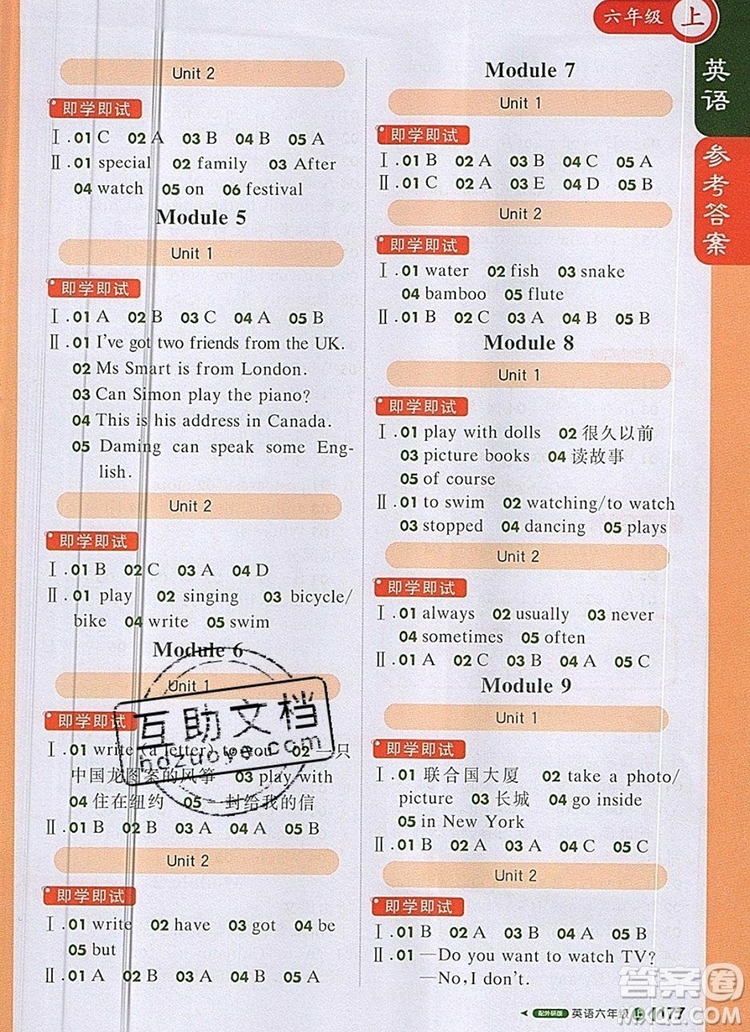 六年级 上
英语
参考答案
Unit 2
即学即试
Ⅰ.01 C 02 A 03 B 04 B 05 A
Ⅱ.01 special 02 family 03 After
04 watch 05 on 06 festival
Module 5
Unit 1
即学即试
Ⅰ.01 A 02 B 03 C 04 A 05 B
Ⅱ.01 I've got two friends from the UK.
02 Ms Smart is from London.
03 Can Simon play the piano?
04 This is his address in Canada.
05 Daming can speak some Eng-
lish.
Unit 2
即学即试
Ⅰ.01 B 02 C 03 A 04 D
Ⅱ.01 play 02 singing 03 bicycle/
bike 04 write 05 swim
Module 6
Unit 1
即学即试
Ⅰ.01 write (a letter) to you 02 一只
中国龙图案的风筝 03 play with
04 住在纽约 05 一封给我的信
Ⅱ.01 B 02 B 03 A 04 A 05 B
Unit 2
即学即试
Ⅰ.01 write 02 have 03 got 04 be
05 but
Ⅱ.01 A 02 B 03 A 04 B 05 A
Module 7
Unit 1
即学即试
Ⅰ.01 B 02 A 03 B 04 A 05 B
Ⅱ.01 C 02 A 03 E 04 D 05 B
Unit 2
即学即试
Ⅰ.01 water 02 fish 03 snake
04 bamboo 05 flute
Ⅱ.01 B 02 A 03 A 04 B 05 B
Module 8
Unit 1
即学即试
Ⅰ.01 play with dolls 02 很久以前
03 picture books 04 读故事
05 of course
Ⅱ.01 to swim 02 watching/to watch
03 stopped 04 dancing 05 plays
Unit 2
即学即试
Ⅰ.01 always 02 usually 03 never
04 sometimes 05 often
Ⅱ.01 A 02 B 03 A 04 B 05 A
Module 9
Unit 1
即学即试
Ⅰ.01 联合国大厦 02 take a photo/
picture 03 长城 04 go inside
05 in New York
Ⅱ.01 B 02 B 03 A 04 A 05 B
Unit 2
即学即试
Ⅰ.01 A 02 B 03 A 04 B 05 B
Ⅱ.01 —Do you want to watch TV?
—No, I don't.
配外研版 英语六年级 上 177
互助文档
hdzuoye.com
答案圈
MXQE.COM